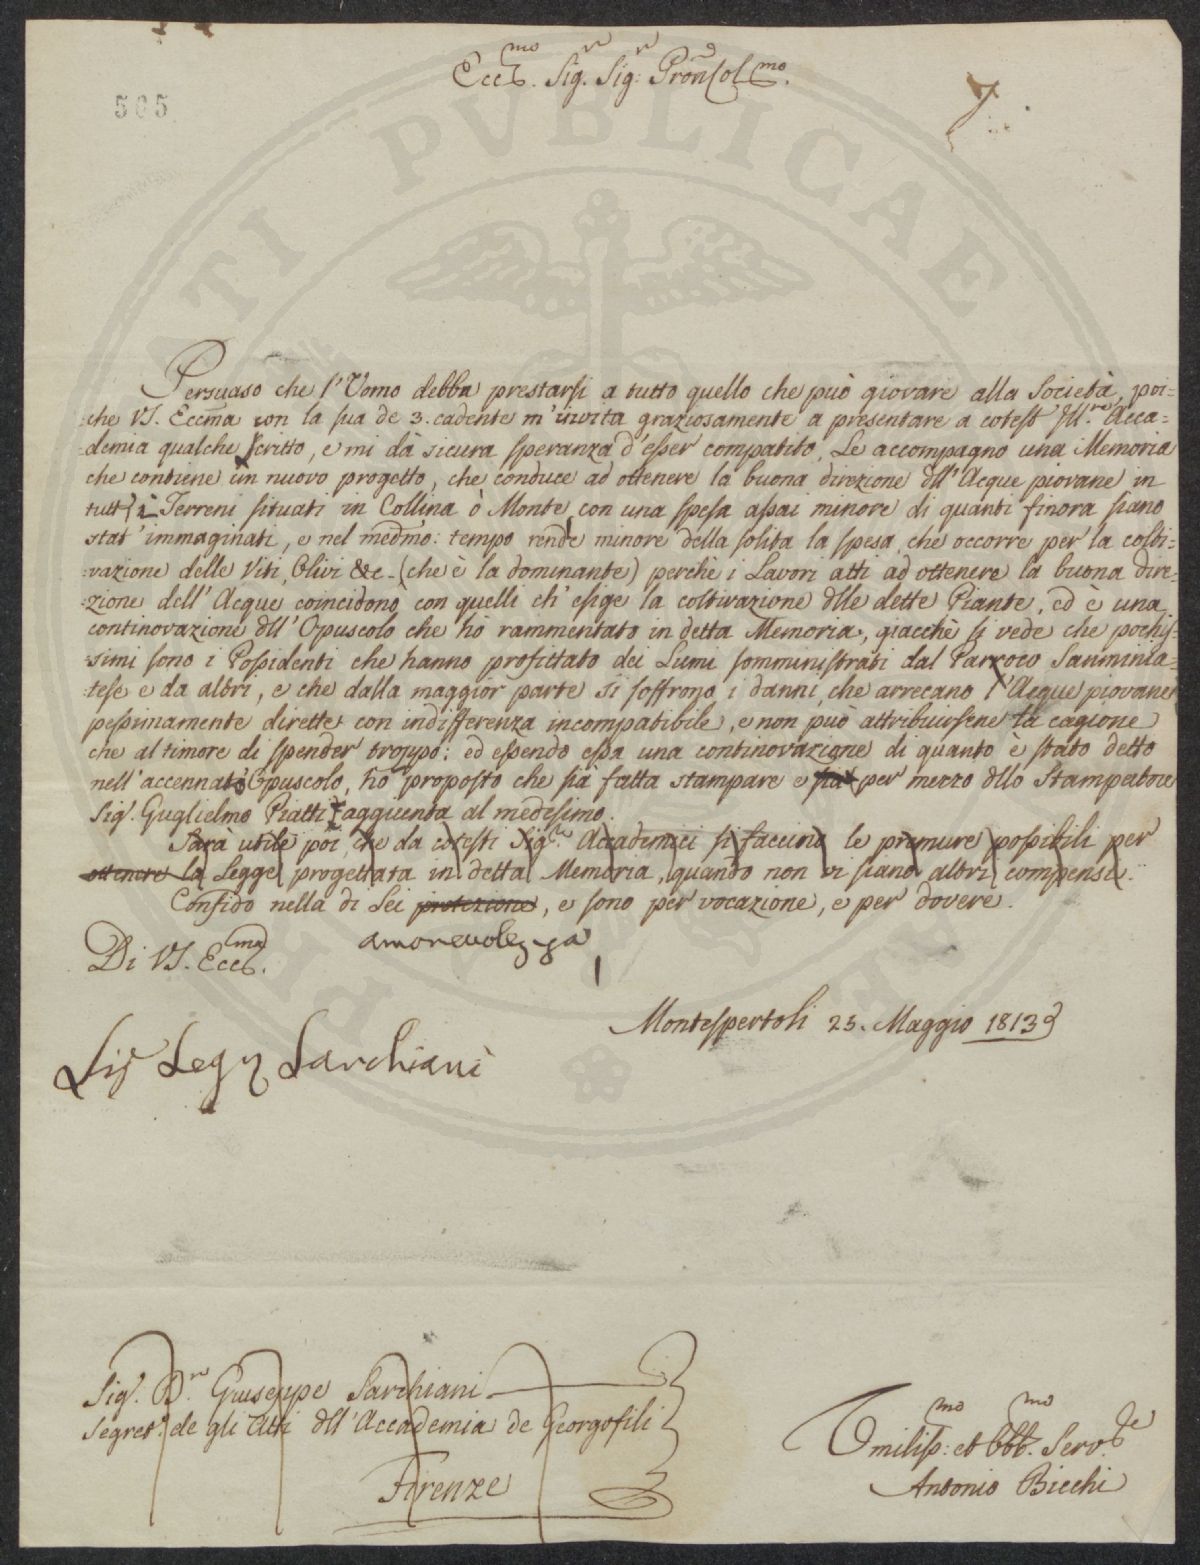 505
7
Ecc.mo Sig.re Sig.re Pron Col.mo
Persuaso che l'Uomo debba prestarsi a tutto quello che può giovare alla Società, poi-
=che VS. Eccma con la sua de 3. cadente m'invita graziosamente a presentare a cotest' Ill.re Acca=
=demia qualche scritto, e mi dà sicura speranza d'esser compatito, Le accompagno una Memoria
che contiene un nuovo progetto, che conduce ad ottenere la buona direzione dll'Acque piovane in
tutt' i Terreni situati in Collina ò Monte con una spesa assai minore di quanti finora siano
stat' immaginati, e nel medmo: tempo rende minore della solita la spesa, che occorre per la colti=
=vazione delle Viti, Olivi &c - (che è la dominante) perchè i Lavori atti ad ottenere la buona dire=
=zione dell'Acque coincidono con quelli ch'esige la coltivazione dlle dette Piante, ed è una
continovazione dll'Opuscolo che hò rammentato in detta Memoria, giacchè si vede che pochis=
=simi sono i Possidenti che hanno profittato dei Lumi somministrati dal Parroco Sanminia=
=tese e da altri, e che dalla maggior parte si soffrono i danni, che arrecano l'Acque piovane
pessimamente dirette con indifferenza incompatibile, e non può attribuirsene la cagione
che al timore di spender troppo: ed essendo essa una continovazione di quanto è stato detto
nell'accennato Opuscolo, hò proposto che sia fatta stampare e sia per mezzo dllo Stampatore
Sig.r Guglielmo Piatti aggiunta al medesimo.
Sarà utile poi, che da cotesti Sig.ri Accademici si faccino le premure possibili per
ottenere la Legge progettata in detta Memoria, quando non vi siano altri compensi.
Confido nella di Lei protezione, e sono per vocazione, e per dovere.
amorevolezza
Di VS. Ecc.ma
Montespertoli 25. Maggio 1813
Sig Seg Sarchiani
Sig.r D.re Giuseppe Sarchiani
Segret.o de gli Atti dll'Accademia de Georgofili
Firenze
Umiliss.mo et Obb.mo Serv.re
Antonio Bicchi